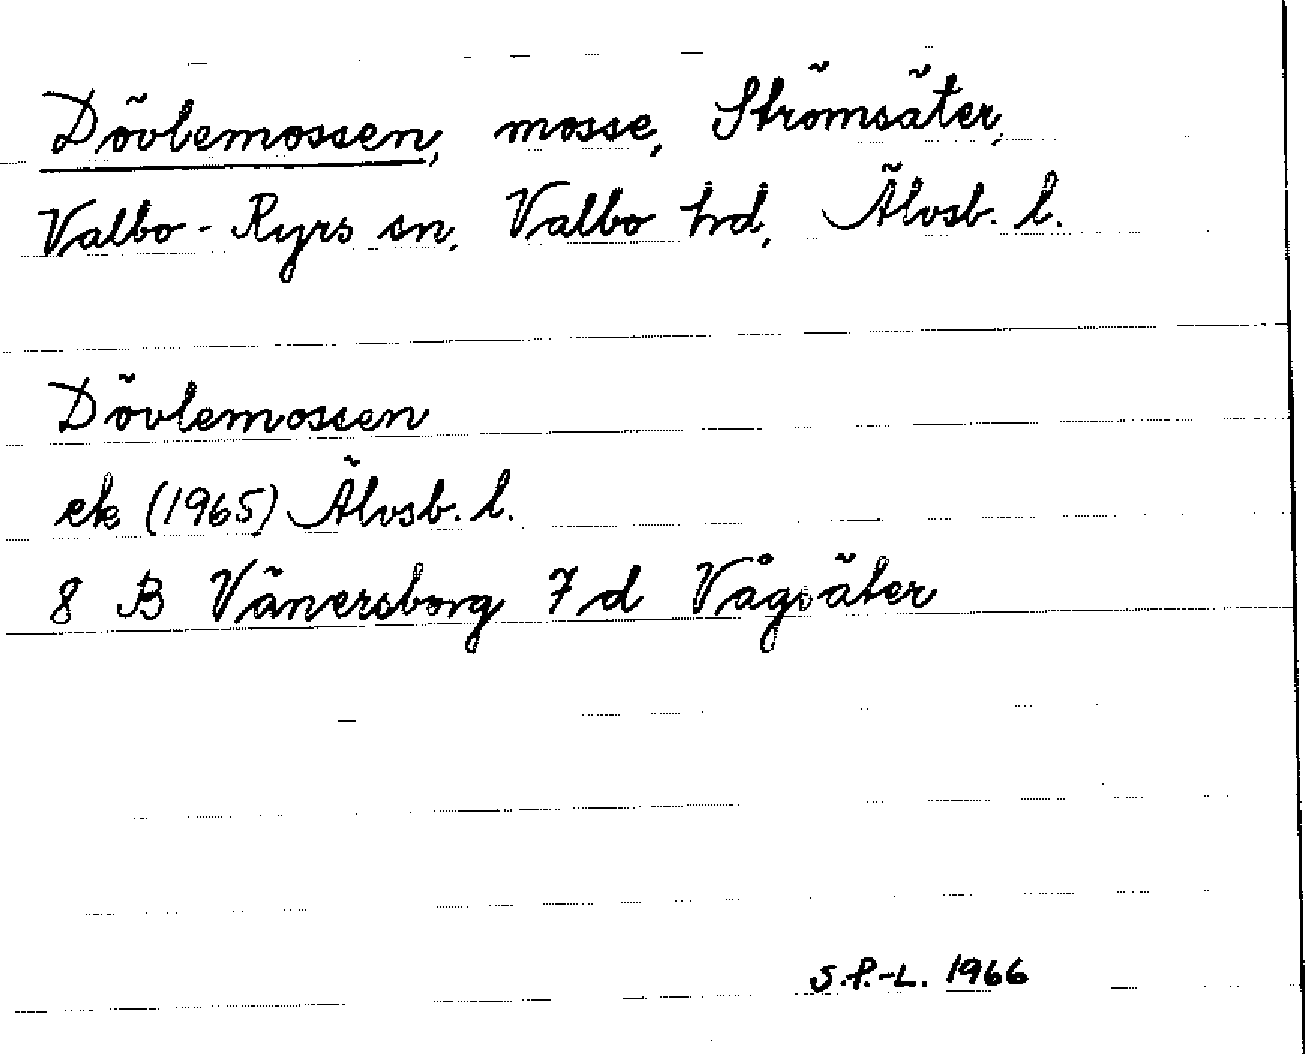 Dövlemossen, mosse, Strömsäter,
Valbo-Ryrs sn, Valbo hd, Älvsb. l.
Dövlemossen
ek (1965) Älvsb. l.
8 B Vänersborg 7 d Vågsäter
S.P.-L. 1966